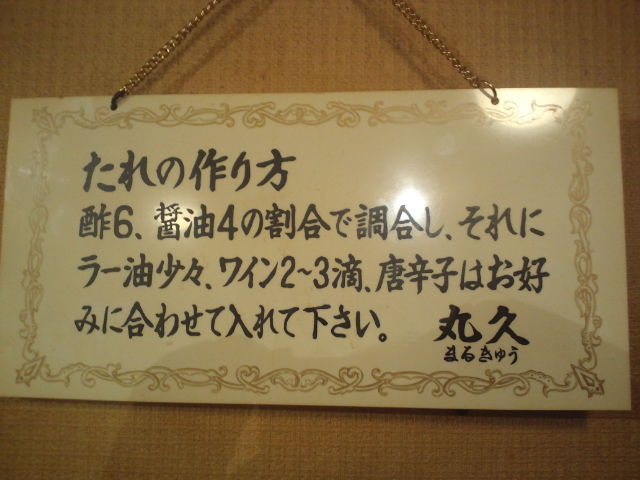 たれの作り方
酢6、醤油4の割合で調合し、それに
ラー油少々、ワイン2〜3滴、唐辛子はお好
みに合わせて入れて下さい。 丸久
まるきゅう